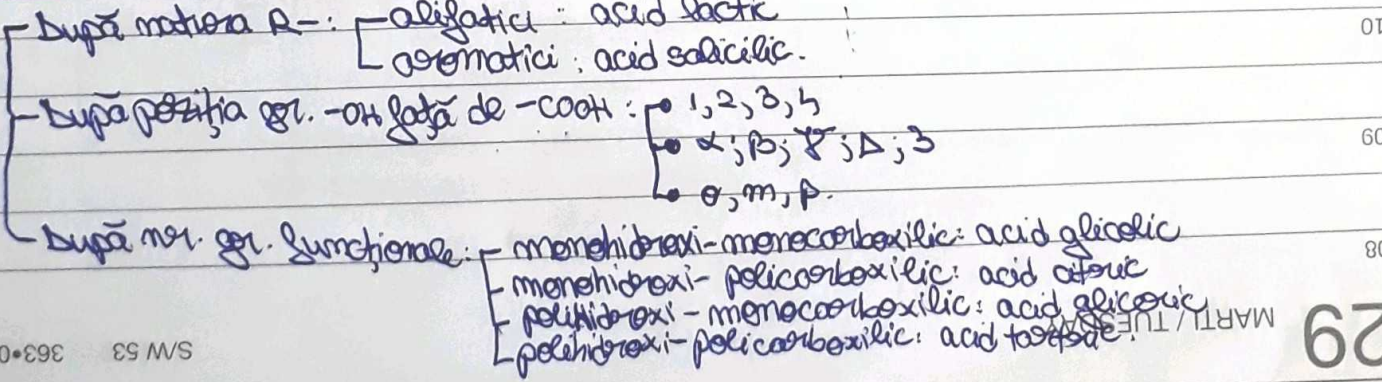 După natura R-: alifatici: acid lactic
aromatici: acid salicilic.
După poziția gr. -OH față de -COOH: • 1, 2, 3, 4
• α; β; γ; Δ; 3
• o, m, p.
După nr. gr. funcționale: - monohidroxi-monocarboxilic: acid glicolic
- monohidroxi-policarboxilic: acid citric
- polihidroxi-monocarboxilic: acid gliceric
- polihidroxi-policarboxilic: acid tartric.
10
09
08
29 MARȚI / TUESDAY
S/W 53 363•0